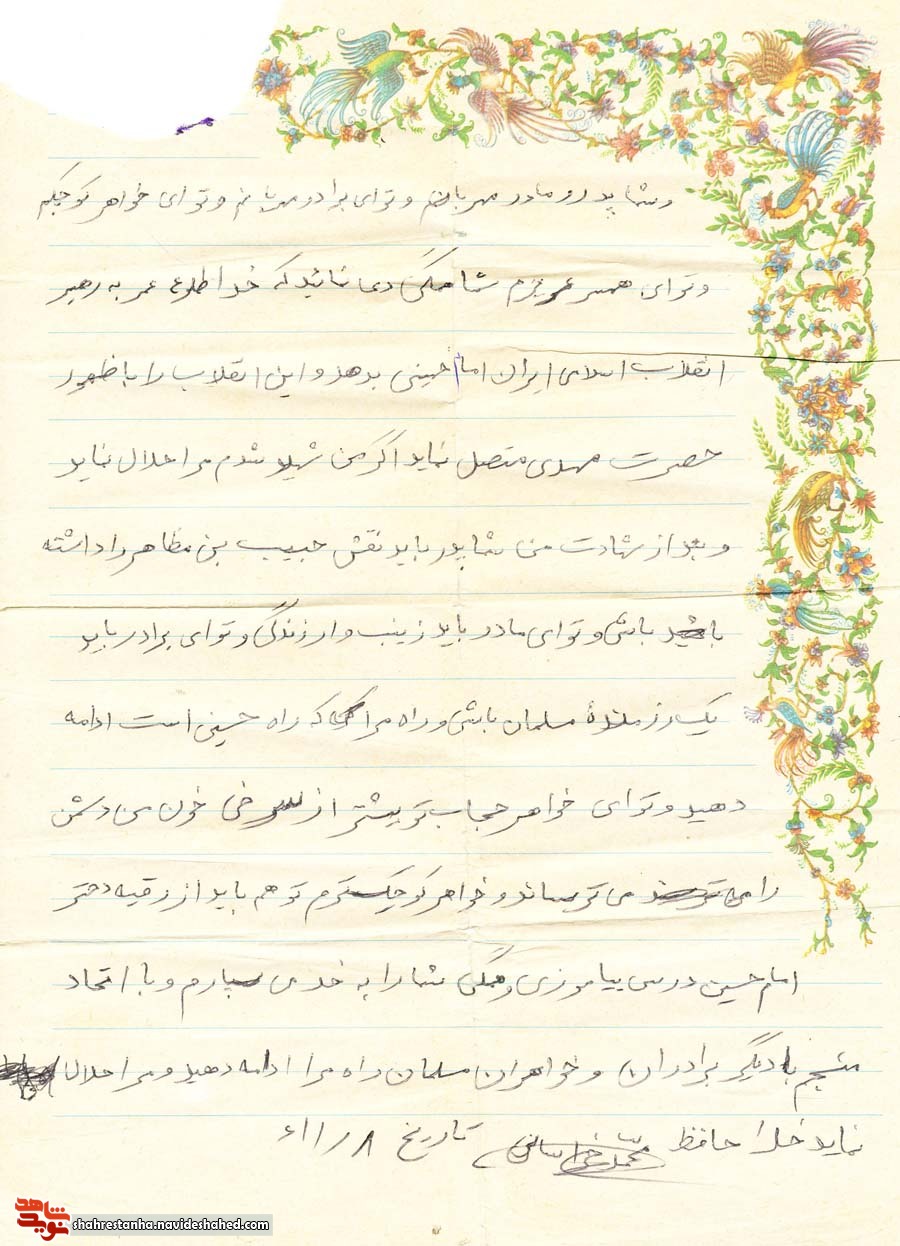 و شما پدر و مادر مهربانم و تو ای برادر مهربانم و تو ای خواهر کوچکم
و تو ای همسر عزیزم شما همگی دعا نمائید که خدا طلوع عمر به رهبر
انقلاب اسلامی ایران امام خمینی بدهد و این انقلاب را به ظهور
حضرت مهدی متصل نماید اگر من شهید شدم مرا حلال نماید
و بعد از شهادت من شما پدر باید نقش حبیب بن مظاهر را داشته
باشی و تو ای مادر باید زینب وار زندگی و تو ای برادر باید
یک رزمندهٔ مسلمان باشی و راه مرا که راه حسینی است ادامه
دهید و تو ای خواهر حجاب تو بیشتر از سرخی خون من دشمن
را می ترساند و خواهر کوچکترم تو هم باید از رقیه دختر
امام حسین درس بیاموزی و همگی شما را به خدا می سپارم و با اتحاد
منسجم با دیگر برادران و خواهران مسلمان راه مرا ادامه دهید و مرا حلال
نماید خدا حافظ تاریخ
شاهد
نوید
shahrestanha.navideshahed.com